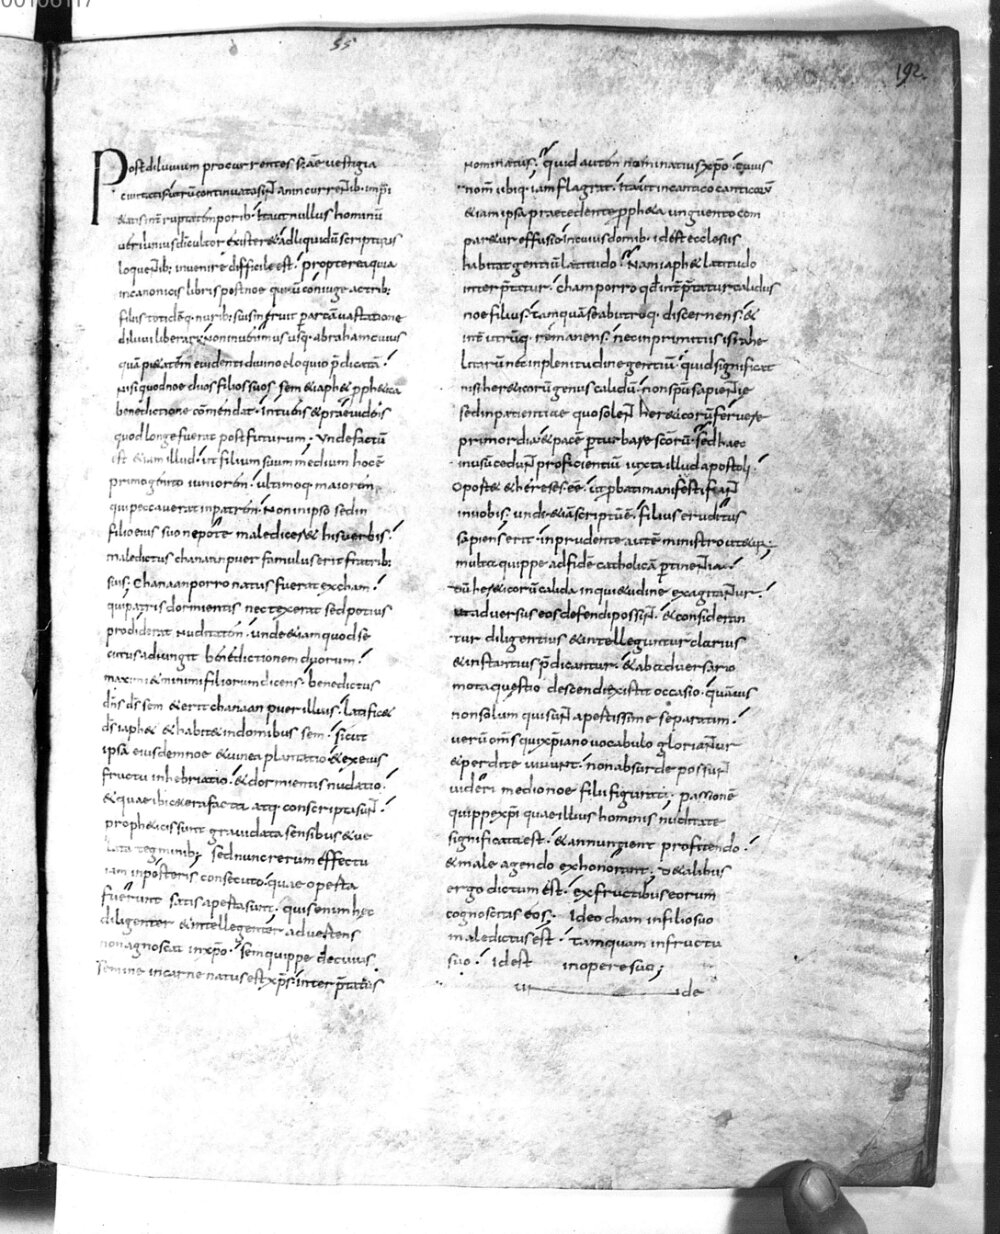 00106117
55
192.
Post diluuium procurrentes scae uestigia
ciuitatis utrū continuata sin̄ an incurrentib; impi
&atis int̄ruptatemporib; Ita ut nullus hominū
ueri unius di cultor exister& adliquidū scripturis
loquentib; inuenire difficile est. propterea quia
incanonicis libris postnoe quicū coniuge actrib;
filiis totidēq; nurib; suis meruit parcā uastatione
diluuii liberari; Noninuenimus usq; abraham cuius
quā pi&atem euidenti diuino eloquio p̄dicatā.
Nisi quodnoe duos filios suos sem &iaph& pph&ica
benedictione cōmendat. Intuens &praeuidens
quod longe fuerat post futurum; Unde factū
est &iam illud. ut filium suum medium hocē
primogenito iuniorem. ultimoq; maiorem
qui peccauerat inpatrem. Non inipso sed in
filio eius suo nepote maledicer& his uerbis.
maledictus chanaan puer famulus erit fratrib;
suis; Chanaan porro natus fuerat ex cham.
qui patris dormientis nec texerat sed potius
prodiderat nuditatem. unde &iam quod se
cutus adiungit benedictionem duorum.
maximi &minimi filiorum dicens. benedictus
dn̄s d̄s sem & erit chanaan puer illius. latific&
d̄s iaph& & habit& indomibus sem. sicut
ipsa eiusdem noe &uineaplantatio &exeius
fructu inhebriatio. &dormientis nudatio.
&quae ibic&era facta atq; conscripta sun̄.
proph&icis sunt grauidata sensibus &ue
lata tegminib; sed nunc rerum effectu
iam inposteris consecuto quae operta
fuerunt satis aperta sunt. quis enim hec
diligenter &intellegenter aduertens
non agnoscat in xp̄o. Sem quippe de cuius
semine incarne natus est xp̄s. interp̄tatus
nominatus. quid autem nominatius xp̄o. cuius
nomn̄ ubiq; iam flagrat. Ita ut incantico canticorū
&iam ipsa praecedente pph&a unguento com
par&ur effuso Incuius domib; id est ecclesiis
habitat gentiū latitudo. Nam iaph& latitudo
interp̄tatur. cham porro qđ int̄p̄tatur calidus
noe filius. tamquā se abutroq; discernens. &
int̄ utrūq; remanens. nec inprimitiis israhe
litarū nec inplenitudine gentiū. quid significat
nisi her&icorū genus calidū. non spū sapientie
sed inpatientiae quo solent her&icorū feruere
primordia &pacē perturbare sc̄orū. Sed haec
inusū cedun̄ proficientiū iuxta illud apostoli.
Oport& &hereses ee. ut p̄bati manifesti fian̄
inuobis. unde &iā scriptū ē. filius eruditus
sapiens erit. inprudente autē ministro ut&ur;
multa quippe adfidē catholicā pertinentia.
dū her&icorū calida inqui&udine exagitantur.
ut aduersus eos defendi possin̄. &consideran
tur diligentius &intelleguntur clarius
&instantius p̄dicantur. &ab aduersario
mota questio descendi existit occasio. quāuis
non solum qui sun̄ apertissime separatim.
uerū om̄s qui xpiano uocabulo gloriantur
&perdite uiuunt. non absurde possun̄
uideri medio noe filii figurati. passionē
quippe xpi quae illius hominis nuditate
significata est. &annuntient profitendo.
&male agendo exhonorant. De talibus
ergo dictum est. exfructibus eorum
cognoscetis eos. Ideo cham infilio suo
maledictus est. tamquam infructu
suo. Id est inopere suo;
de